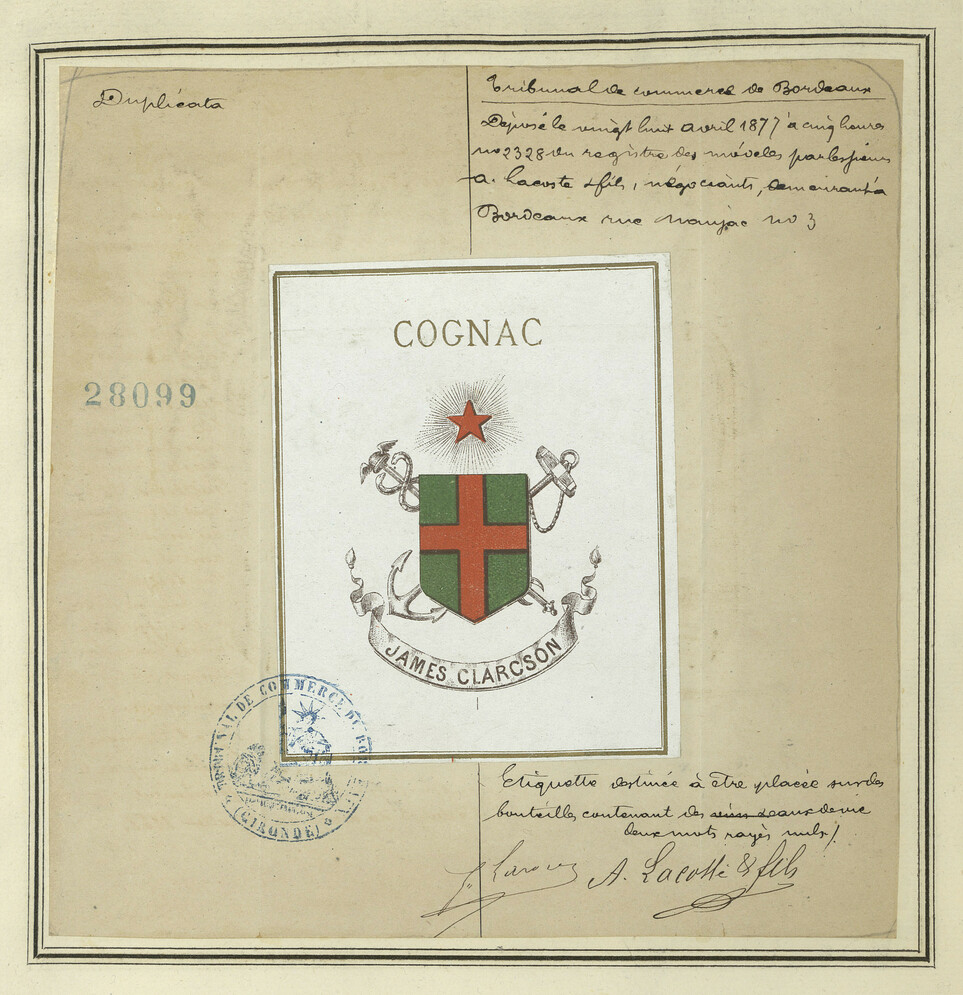 Duplicata
Tribunal de commerce de Bordeaux
Déposé le vingt huit avril 1877 à cinq heures
no 2328 du registre des modèles par les sieurs
A. Lacoste & fils, négociants, demeurant à
Bordeaux rue Naujac no 3
COGNAC
28099
JAMES CLARCSON
TRIBUNAL DE COMMERCE DE BORDEAUX
(GIRONDE)
Etiquette destinée à être placée sur des
bouteilles contenant des eaux de vie
deux mots rayés nuls /
A. Lacoste & fils